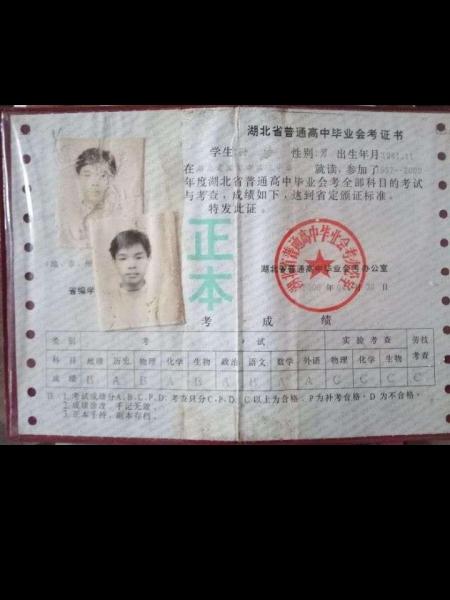 湖北省普通高中毕业会考证书
学生 性别:男 出生年月1981.11
在 就读,参加了1997-2000
年度湖北省普通高中毕业会考全部科目的考试
与考查,成绩如下,达到省定颁证标准。
特发此证。
正本
湖北省普通高中毕业会考办公室
湖北省普通高中毕业会考办公室
年 月 日
省编学
考 试 成 绩
类别 考 试 实验考查 劳技
科目 地理 历史 物理 化学 生物 政治 语文 数学 外语 物理 化学 生物 考查
成绩 B A B A B A B A A C C C C
注:1.考试成绩分A、B、C、P、D,考查只分C、P、D;C以上为合格;P为补考合格;D为不合格。
2.成绩涂改、手记无效。
3.正本手持,副本存档。